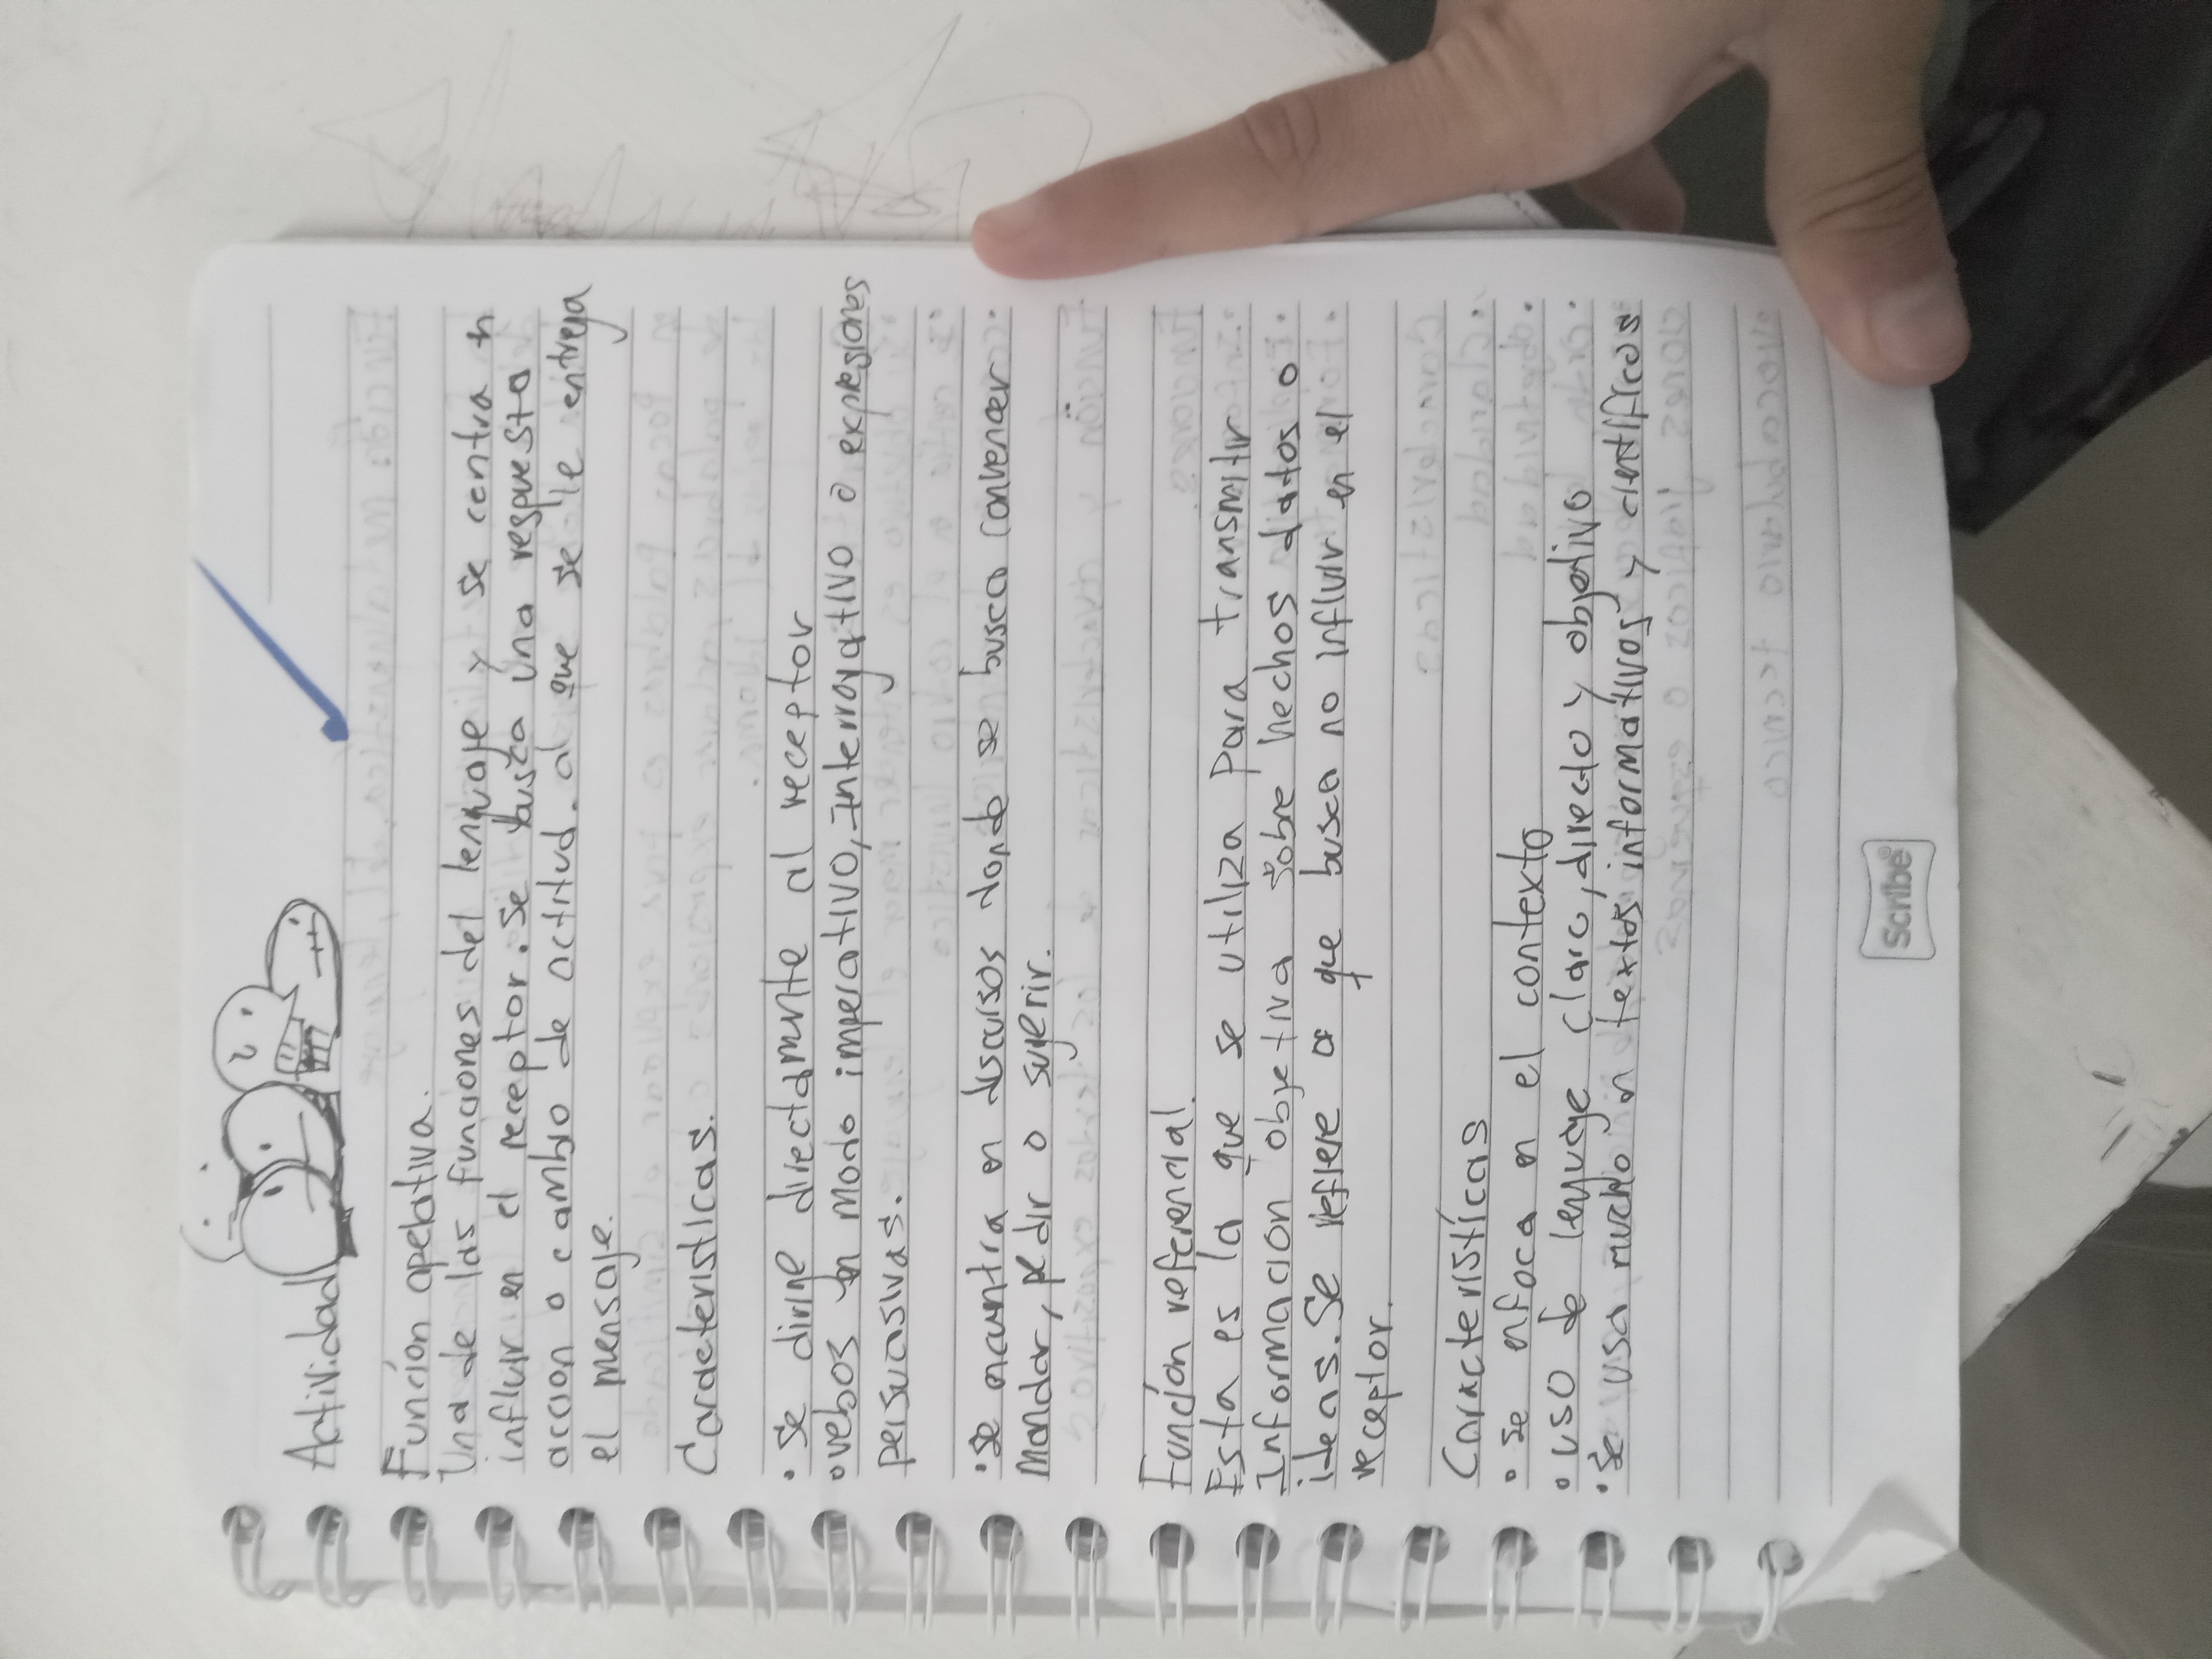 Actividad
Función apelativa.
Una de las funciones del lenguaje y se centra en
influir en el receptor. Se busca una respuesta
accion o cambio de actitud. al que se le entrega
el mensaje.
Carácteristicas.
• Se dirine directamente al receptor
• vebos en modo imperativo, Interrogativo o expresiones
persuasivas.
• Se encuntra en discursos donde se busca convencer
Mandar, pedir o sugerir.
Función referencial.
Esta es la que se utiliza Para transmitir
Informacion objetiva sobre hechos datos o
ideas. Se refiere a que busca no influir en el
receptor.
Caracteristícas
• Se enfoca en el contexto
• uso de lenguaje claro, directo y objetivo
• Se usa mucho en textos informativos y cientificos
Scribe®